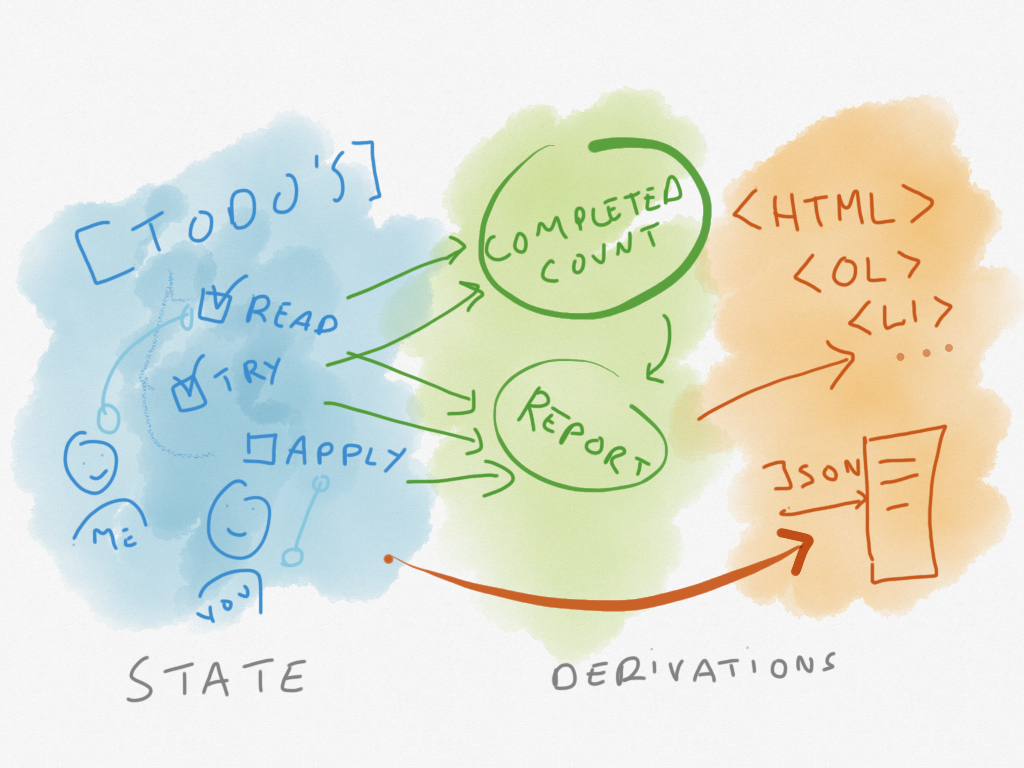 [TODO'S]
READ
TRY
APPLY
ME
YOU
COMPLETED
COUNT
REPORT
<HTML>
<OL>
<LI>
...
JSON
STATE
DERIVATIONS